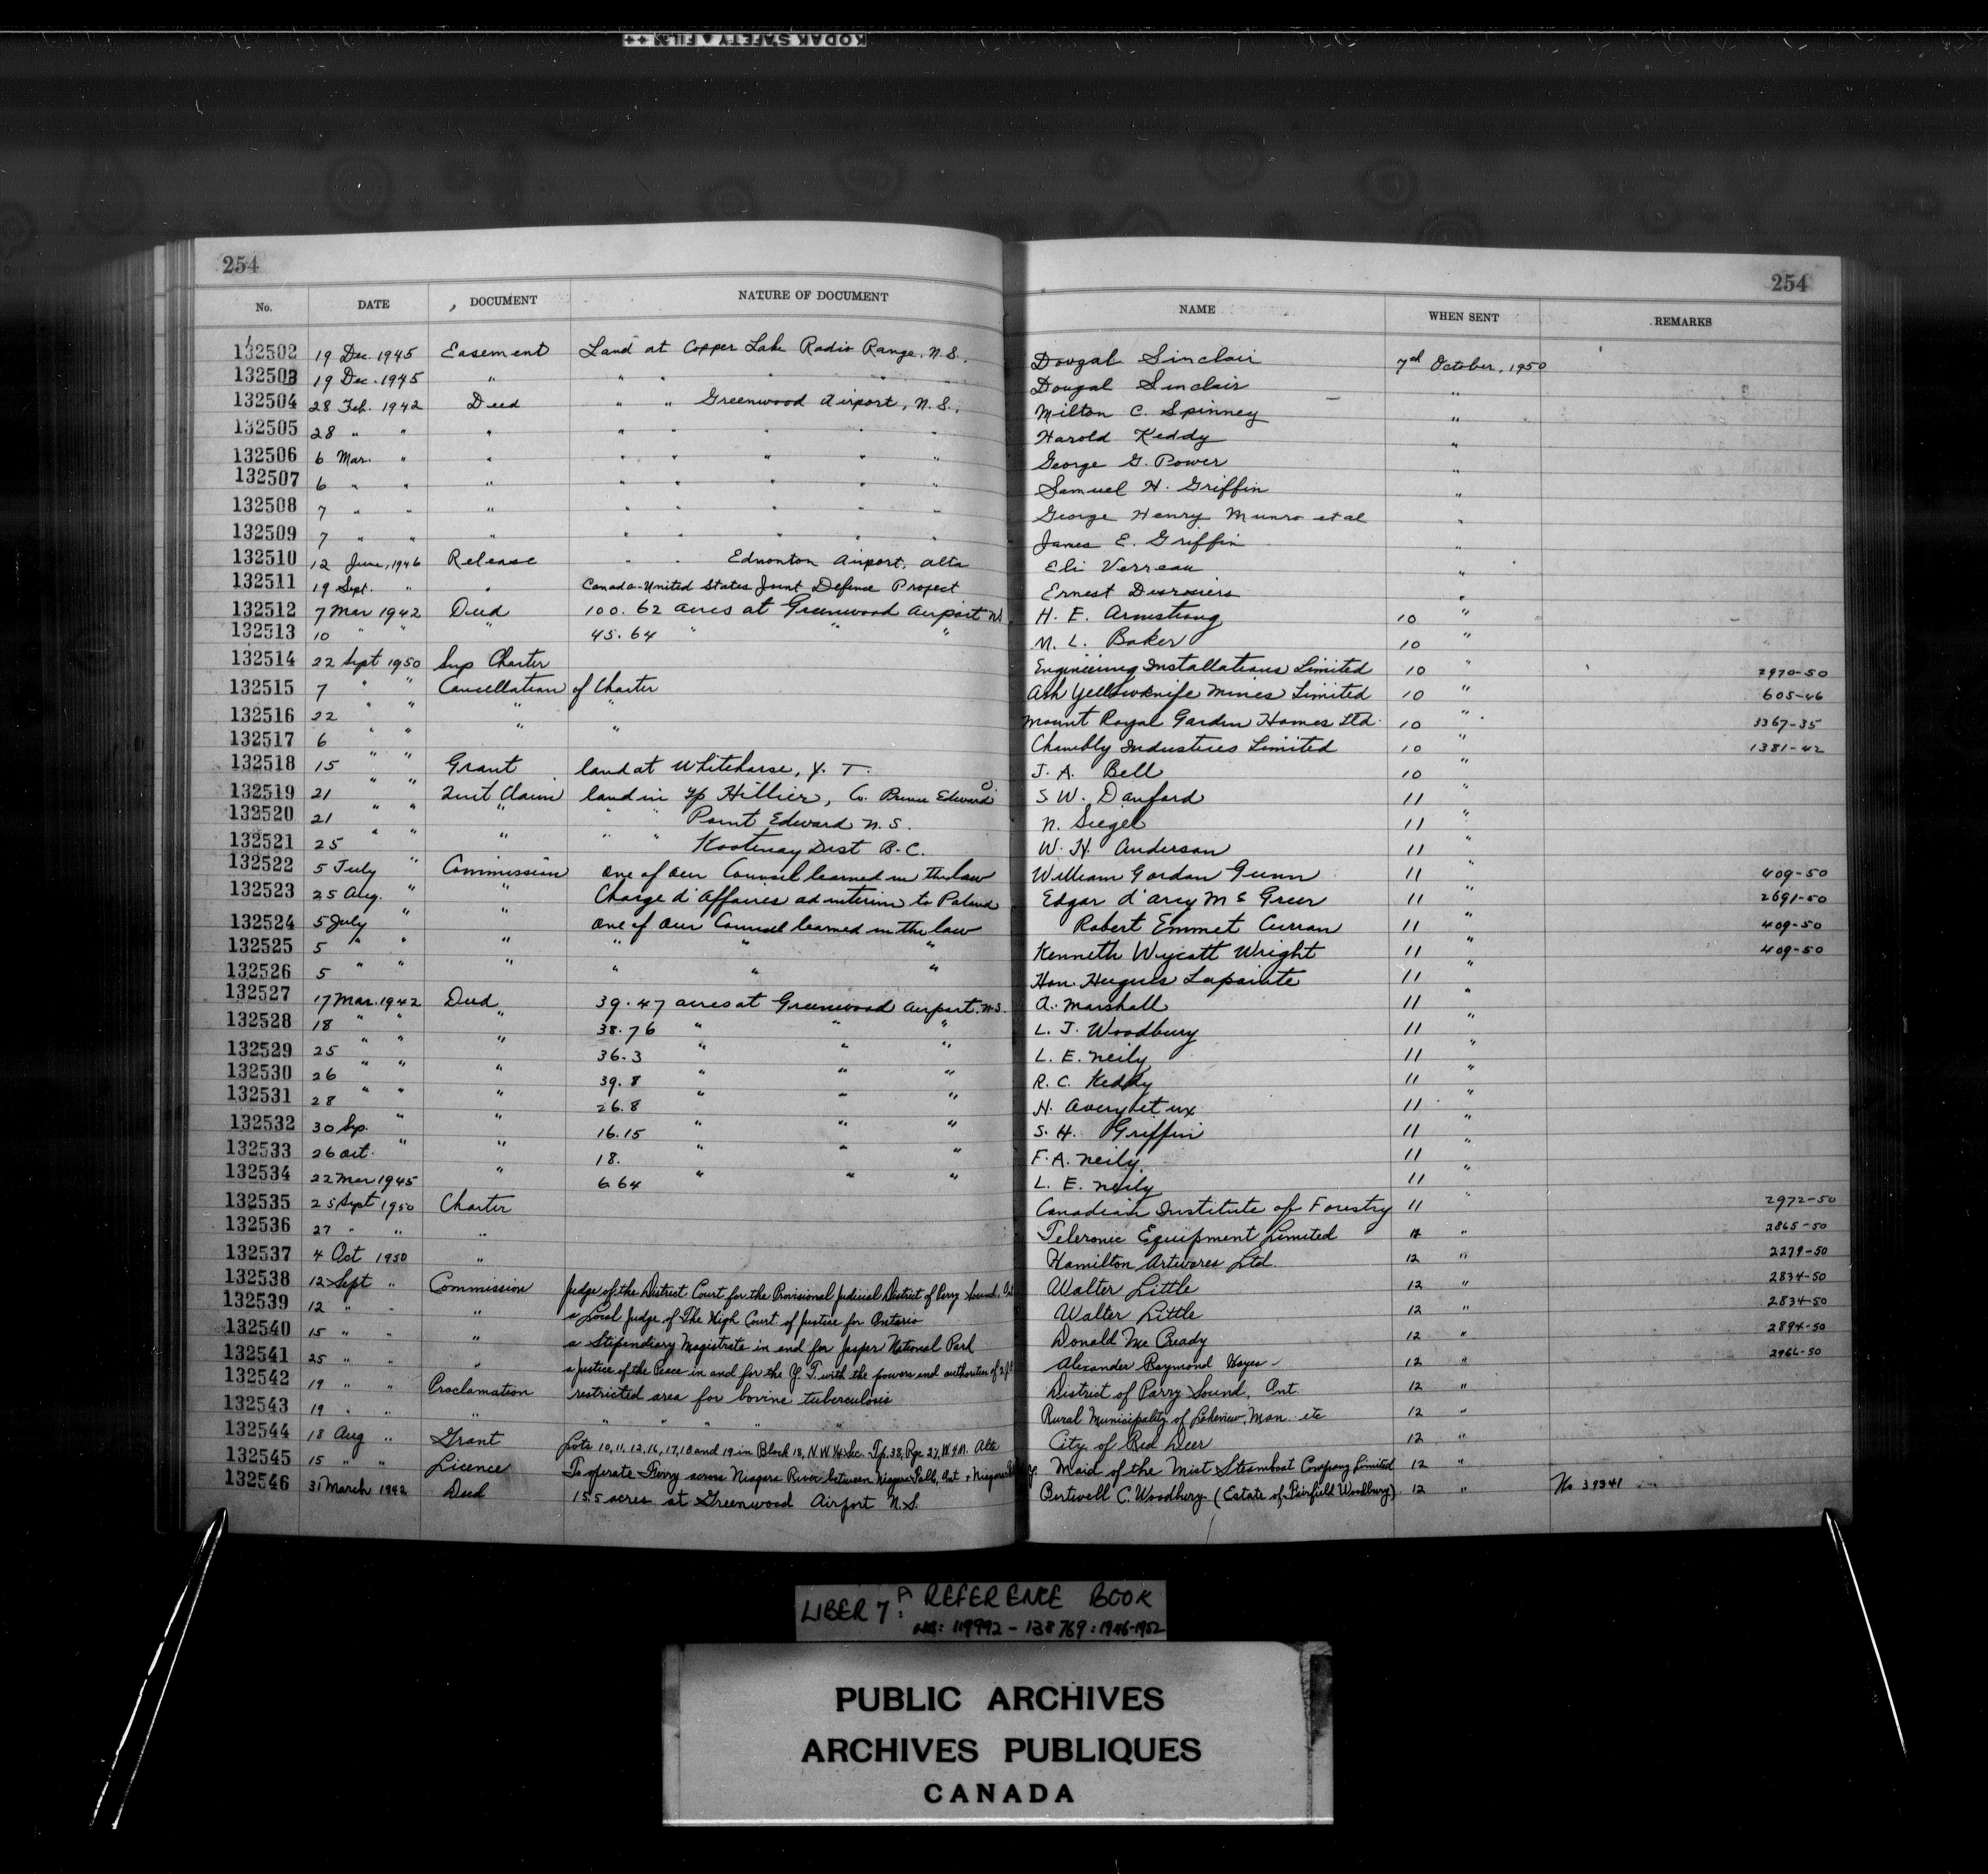 KODAK SAFETY FILM ++
254
254
No. DATE DOCUMENT NATURE OF DOCUMENT NAME WHEN SENT REMARKS
132502 19 Dec. 1945 Easement Land at Copper Lake Radio Range, N.S. Dougal Sinclair 7th October, 1950
132503 19 Dec. 1945 " " " " " " Dougal Sinclair "
132504 28 Feb. 1942 Deed " " Greenwood Airport, N.S. Milton C. Spinney "
132505 28 " " " " " " " " Harold Keddy "
132506 6 Mar. " " " " " " " George G. Power "
132507 6 " " " " " " " " Samuel H. Griffin "
132508 7 " " " " " " " " George Henry Munro et al "
132509 7 " " " " " " " " James E. Griffin "
132510 12 June, 1946 Release " " Edmonton Airport, Alta Eli Verreau "
132511 19 Sept. " " Canada-United States Joint Defence Project Ernest "
132512 7 Mar 1942 Deed 100.62 acres at Greenwood Airport NS H. E. Armstrong 10 "
132513 10 " " " 45.64 " " " M. L. Baker 10 "
132514 22 Sept 1950 Sup Charter Engineering Installations Limited 10 " 2970-50
132515 7 " " Cancellation of Charter Ash Yellowknife Mines Limited 10 " 605-46
132516 22 " " " " Mount Royal Garden Homes Ltd. 10 " 3367-35
132517 6 " " " " Chambly Industries Limited 10 " 1381-42
132518 15 " " Grant land at Whitehorse, Y. T. J. A. Bell 10 "
132519 21 " " Quit Claim land in Tp Hillier, Co. Prince Edward O S. W. Danford 11 "
132520 21 " " " " " Point Edward N.S. N. Siegel 11 "
132521 25 " " " " " Kootenay Dist B.C. W. H. Anderson 11 "
132522 5 July " Commission one of our Counsel learned in the law William Gordon Gunn 11 " 409-50
132523 25 Aug. " " Charge d'Affaires ad interim to Poland Edgar d'arcy McGreer 11 " 2691-50
132524 5 July " " one of our Counsel learned in the law Robert Emmet Curran 11 " 409-50
132525 5 " " " " " " Kenneth Wycatt Wright 11 " 409-50
132526 5 " " " " " " Hon. Hugues Lapointe 11 "
132527 17 Mar. 1942 Deed 39.47 acres at Greenwood Airport. N.S. A. Marshall 11 "
132528 18 " " " 38.76 " " " L. J. Woodbury 11 "
132529 25 " " " 36.3 " " " L. E. Neily 11 "
132530 26 " " " 39.8 " " " R. C. Keddy 11 "
132531 28 " " " 26.8 " " " H. Avery et ux 11 "
132532 30 Sep. " " 16.15 " " " S. H. Griffin 11 "
132533 26 Oct. " " 18. " " " F. A. Neily 11 "
132534 22 Mar 1945 " 6.64 " " " L. E. Neily 11 "
132535 25 Sept 1950 Charter Canadian Institute of Forestry 11 " 2972-50
132536 27 " " " Teleronic Equipment Limited " 2865-50
132537 4 Oct 1950 " Hamilton Artwares Ltd. 12 " 2279-50
132538 12 Sept " Commission Judge of the District Court for the Provisional Judicial District of Parry Sound, Ont Walter Little 12 " 2834-50
132539 12 " " " a Local Judge of The High Court of Justice for Ontario Walter Little 12 " 2834-50
132540 15 " " " a Stipendiary Magistrate in and for Jasper National Park Donald McCready 12 " 2894-50
132541 25 " " " a Justice of the Peace in and for the Y. T. with the powers and authorities of 2 J.P. Alexander Raymond Hayes - 12 " 2966-50
132542 19 " " Proclamation restricted area for bovine tuberculosis District of Parry Sound, Ont. 12 "
132543 19 " " " " " " " " Rural Municipality of Lakeview, Man. etc 12 "
132544 18 Aug " Grant Lots 10, 11, 12, 16, 17, 18 and 19 in Block 18, N W 1/4 Sec. Tp. 38, Rge 27, W4M. Alta City of Red Deer 12 "
132545 15 " " Licence To operate Ferry across Niagara River between Niagara Falls, Ont & Niagara Maid of the Mist Steamboat Company Limited 12 "
132546 31 March 1942 Deed 15.5 acres at Greenwood Airport N.S. Bertwell C. Woodbury (Estate of Fairfield Woodbury) 12 " No 39341
LIBER 7: A REFERENCE BOOK
NOS: 119992 - 138769: 1946-1952
PUBLIC ARCHIVES
ARCHIVES PUBLIQUES
CANADA